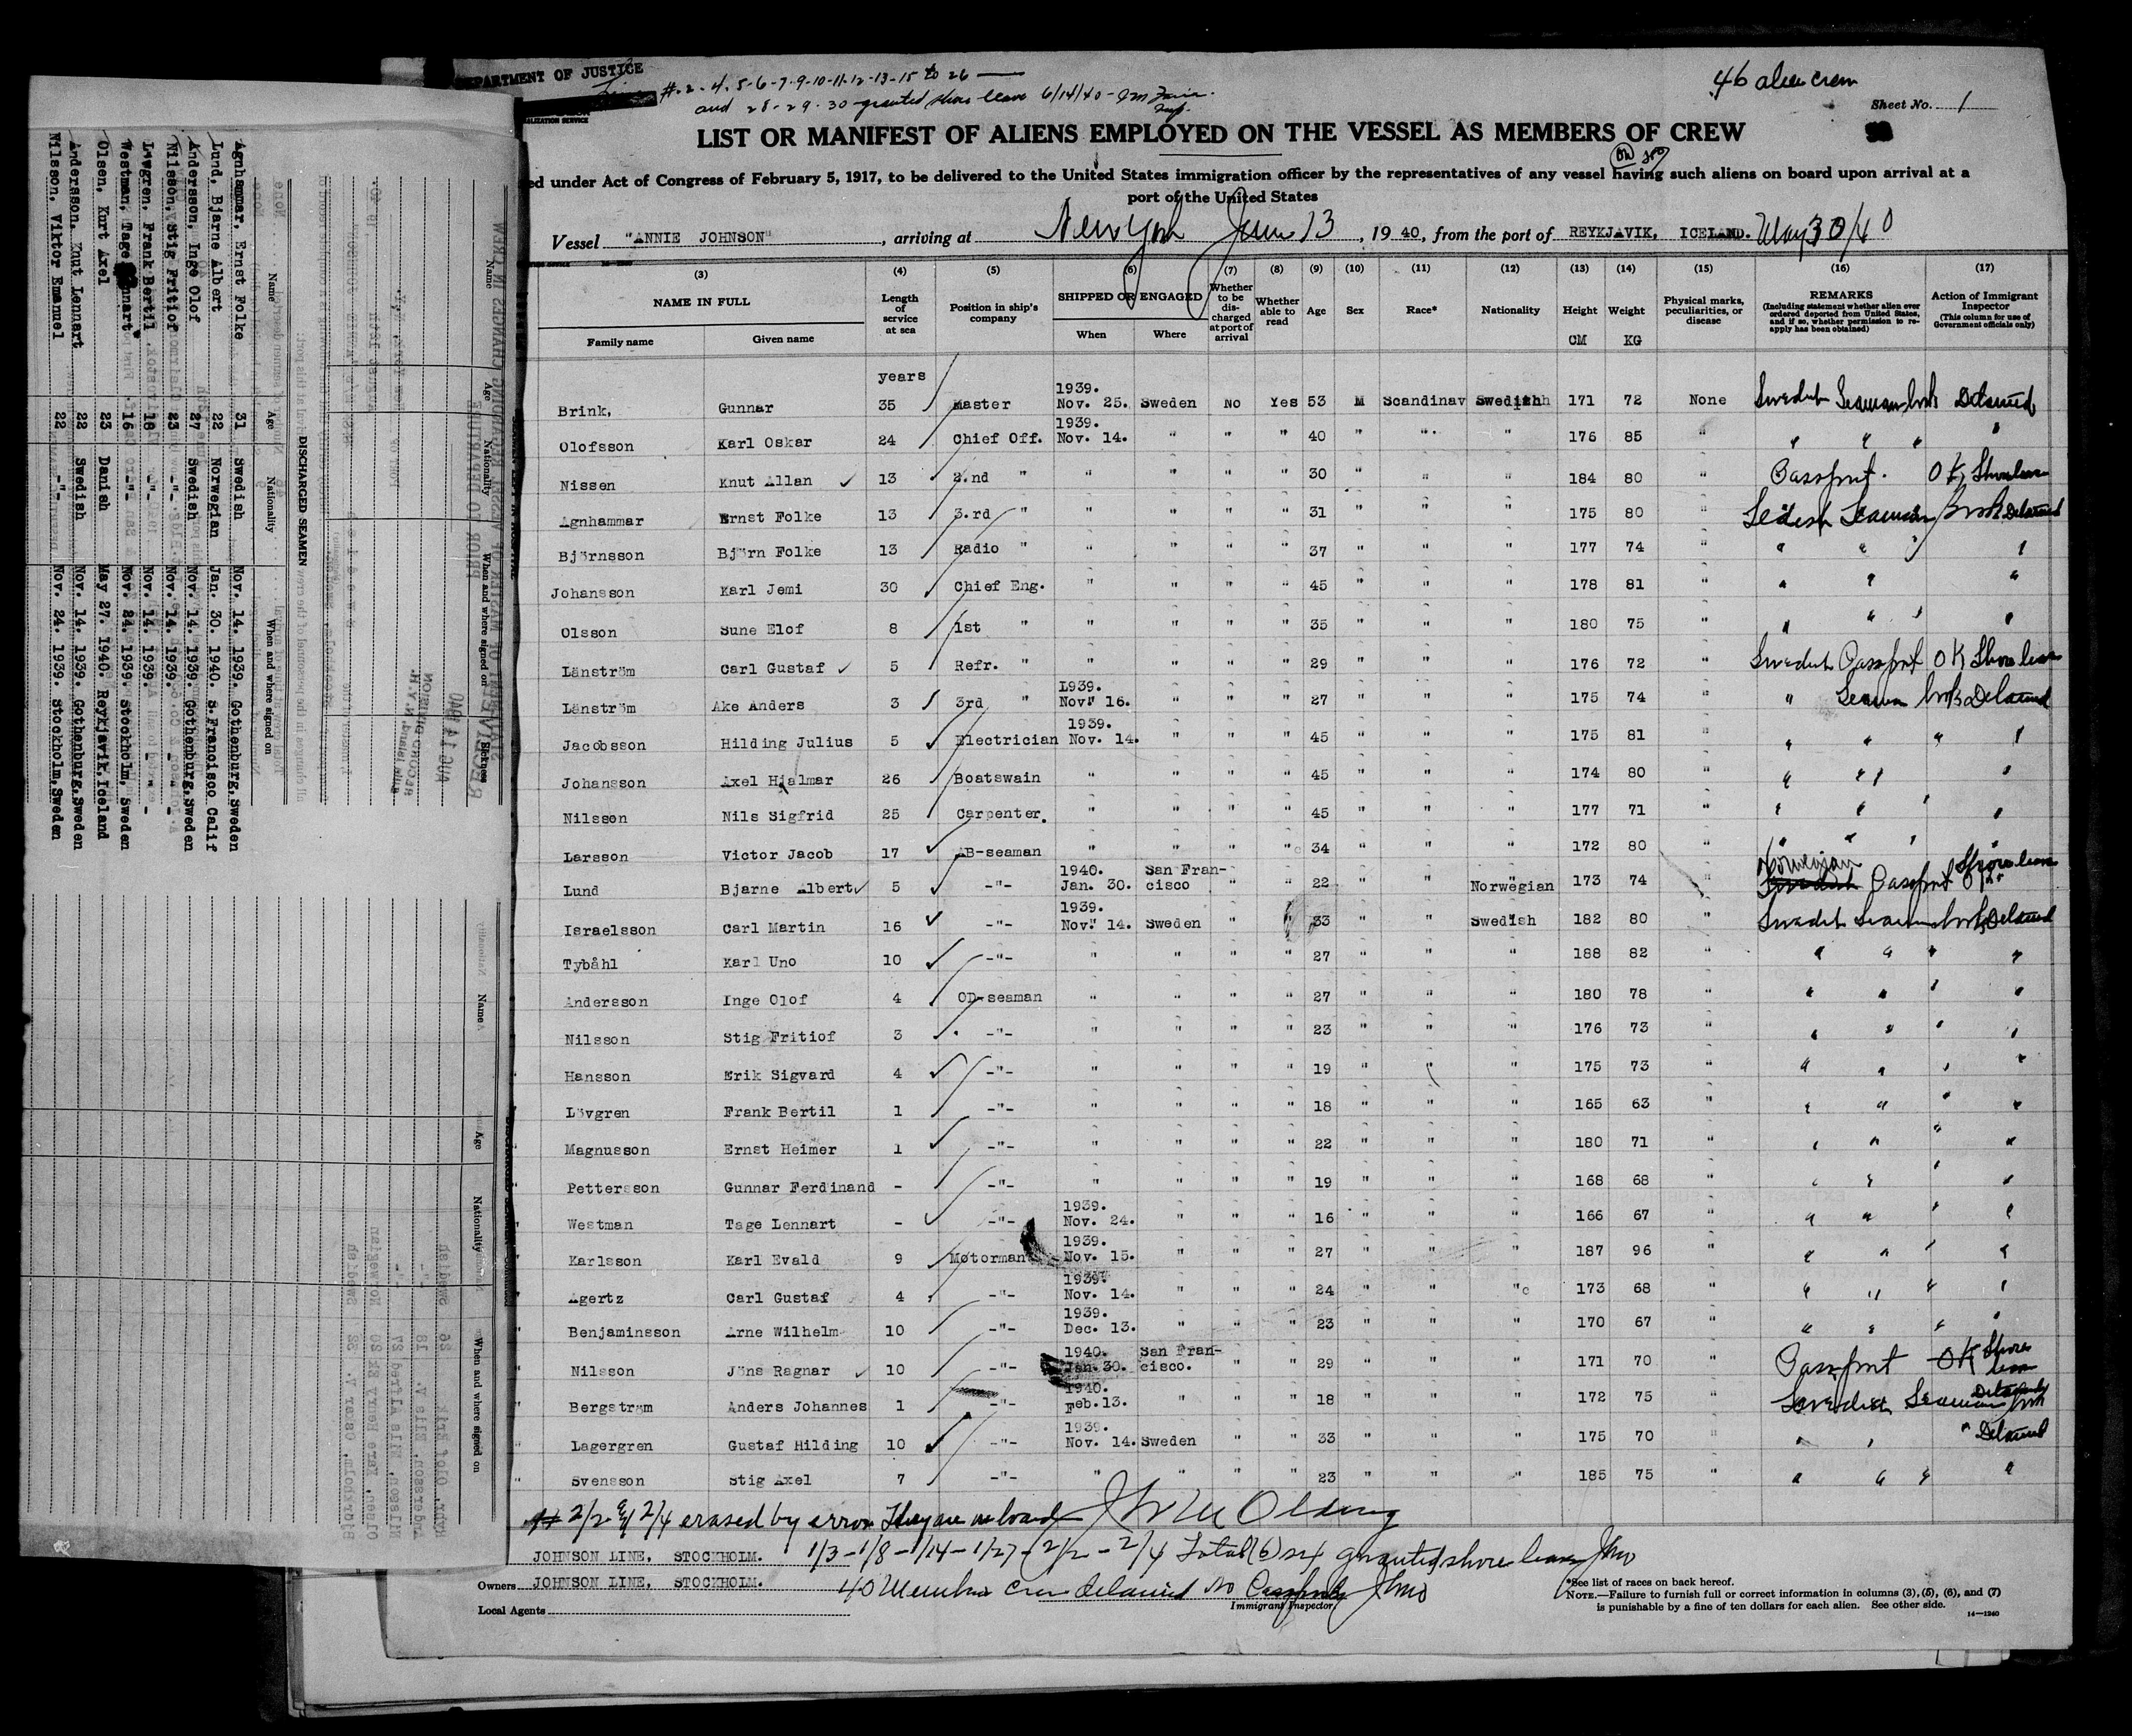 DEPARTMENT OF JUSTICE
#.2-4.5-6-7-9-10-11-12-13-15 to 26
and 28-29-30 granted shore leave 6/14/40
46 alien crew
Sheet No. 1
LIST OR MANIFEST OF ALIENS EMPLOYED ON THE VESSEL AS MEMBERS OF CREW
ed under Act of Congress of February 5, 1917, to be delivered to the United States immigration officer by the representatives of any vessel having such aliens on board upon arrival at a
port of the United States
Vessel "ANNIE JOHNSON", arriving at New York June 13, 1940, from the port of REYKJAVIK, ICELAND. May 30/40
(3) (4) (5) (6) (7) (8) (9) (10) (11) (12) (13) (14) (15) (16) (17)
NAME IN FULL Length of service at sea Position in ship's company SHIPPED OR ENGAGED Whether to be discharged at port of arrival Whether able to read Age Sex Race* Nationality Height Weight Physical marks, peculiarities, or disease REMARKS (Including statement whether alien ever ordered deported from United States, and if so, whether permission to reapply has been obtained) Action of Immigrant Inspector (This column for use of Government officials only)
Family name Given name When Where CM KG
years
Brink, Gunnar 35 Master 1939. Nov. 25. Sweden No Yes 53 M Scandinav Swedish 171 72 None Swedish Seaman bok Detained
Olofsson Karl Oskar 24 Chief Off. 1939. Nov. 14. " " " 40 " " " 176 85 " " " " "
Nissen Knut Allan 13 2.nd " " " " " 30 " " " 184 80 " Passport. OK Shore leave
Agnhammar Ernst Folke 13 3.rd " " " " " 31 " " " 175 80 " Seaman Detained
Björnsson Björn Folke 13 Radio " " " " " 37 " " " 177 74 " " " "
Johansson Karl Jemi 30 Chief Eng. " " " " 45 " " " 178 81 " " " "
Olsson Sune Elof 8 1st " " " " " 35 " " " 180 75 " " " " "
Länström Carl Gustaf 5 Refr. " " " " " 29 " " " 176 72 " Swedish Passport OK Shore leave
Länström Ake Anders 3 3rd " 1939. Nov. 16. " " " 27 " " " 175 74 " " Seaman Detained
Jacobsson Hilding Julius 5 Electrician 1939. Nov. 14. " " " 45 " " " 175 81 " " " " "
Johansson Axel Hjalmar 26 Boatswain " " " " 45 " " " 174 80 " " " "
Nilsson Nils Sigfrid 25 Carpenter. " " " " 45 " " " 177 71 " " " " "
Larsson Victor Jacob 17 AB-seaman " " " " 34 " " " 172 80 " " " " "
Lund Bjarne Albert 5 -"- 1940. Jan. 30. San Francisco " " 22 " " Norwegian 173 74 " Norwegian Passport OK Shore leave
Israelsson Carl Martin 16 -"- 1939. Nov. 14. Sweden " " 33 " " Swedish 182 80 " Swedish Seaman Detained
Tybåhl Karl Uno 10 -"- " " " " 27 " " " 188 82 " " " " "
Andersson Inge Olof 4 OD-seaman " " " " 27 " " " 180 78 " " " " "
Nilsson Stig Fritiof 3 -"- " " " " 23 " " " 176 73 " " " " "
Hansson Erik Sigvard 4 -"- " " " " 19 " " " 175 73 " " " " "
Lövgren Frank Bertil 1 -"- " " " " 18 " " " 165 63 " " " " "
Magnusson Ernst Heimer 1 -"- " " " " 22 " " " 180 71 " " " " "
Pettersson Gunnar Ferdinand - -"- " " " " 19 " " " 168 68 " " " " "
Westman Tage Lennart - -"- 1939. Nov. 24. " " " 16 " " " 166 67 " " " " "
Karlsson Karl Evald 9 Motorman 1939. Nov. 15. " " " 27 " " " 187 96 " " " " "
Agertz Carl Gustaf 4 -"- 1939. Nov. 14. " " " 24 " " " 173 68 " " " " "
Benjaminsson Arne Wilhelm 10 -"- 1939. Dec. 13. " " " 23 " " " 170 67 " " " " "
Nilsson Jöns Ragnar 10 -"- 1940. Jan. 30. San Francisco. " " 29 " " " 171 70 " Passport OK Shore leave
Bergstrøm Anders Johannes 1 -"- 1940. Feb. 13. " " " 18 " " " 172 75 " Swedish Seaman Detained
Lagergren Gustaf Hilding 10 -"- 1939. Nov. 14. Sweden " " 33 " " " 175 70 " " " " Detained
Svensson Stig Axel 7 -"- " " " " 23 " " " 185 75 " " " " "
2/2 & 2/4 erased by error They are on board
1/3 - 1/8 - 1/14 - 1/27 - 2/2 - 2/4 Total (6) six granted shore leave
JOHNSON LINE, STOCKHOLM.
Owners JOHNSON LINE, STOCKHOLM.
40 Members crew detained No Passports
Local Agents
Immigrant Inspector
*See list of races on back hereof.
NOTE.—Failure to furnish full or correct information in columns (3), (5), (6), and (7)
is punishable by a fine of ten dollars for each alien. See other side.
14—1240
Name Age Nationality When and where signed on Sickness
DISCHARGED SEAMEN
Name Age Nationality When and where signed on
Agnhammar, Ernst Folke 31 Swedish Nov. 14. 1939. Gothenburg, Sweden
Lund, Bjarne Albert 22 Norwegian Jan. 30. 1940. S. Francisco Calif
Andersson, Inge Olof 27 Swedish Nov. 14. 1939. Gothenburg, Sweden
Nilsson, Stig Fritiof 23 -"- Nov. 14. 1939. -"-
Lövgren, Frank Bertil 18 -"- Nov. 14. 1939. -"-
Westman, Tage Lennart 16 -"- Nov. 24. 1939. Stockholm, Sweden
Olsen, Kurt Axel 23 Danish May 27. 1940. Reykjavik, Iceland
Andersson, Knut Lennart 22 Swedish Nov. 14. 1939. Gothenburg, Sweden
Nilsson, Viktor Emanuel 22 -"- Nov. 24. 1939. Stockholm, Sweden
Name Age Nationality When and where signed on